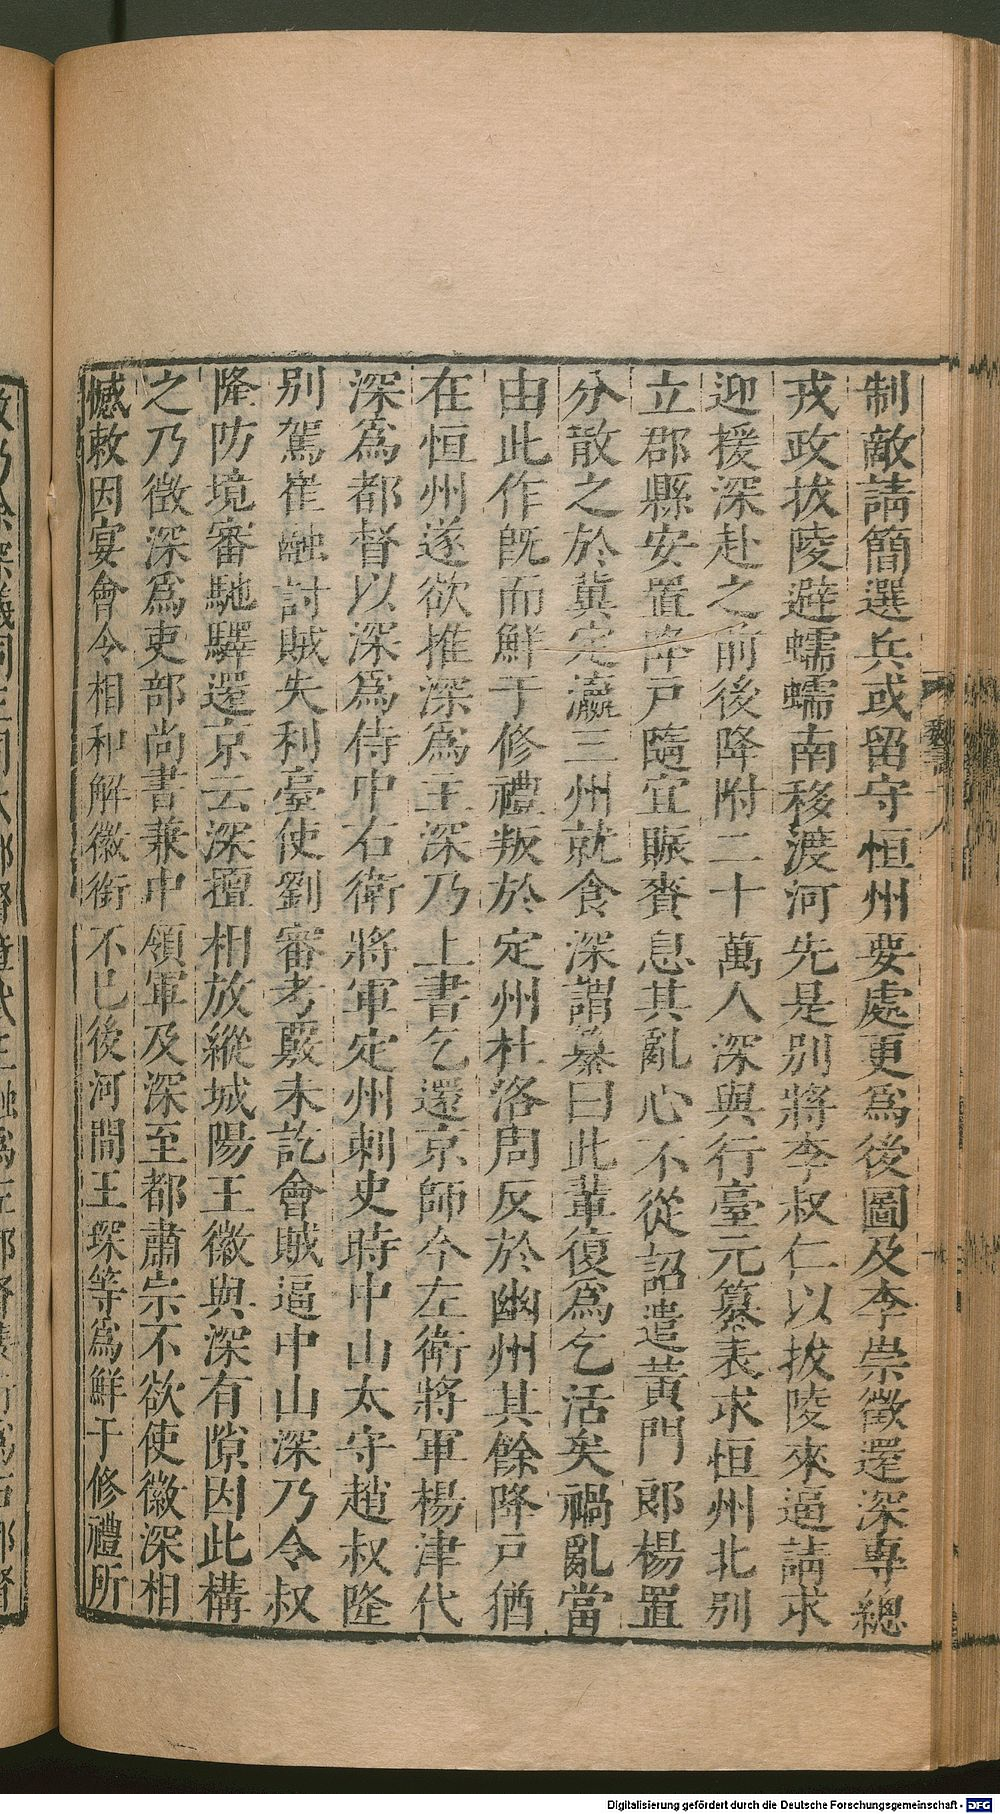 制敵請簡選兵或留守恒州要處更爲後圖及李崇徵還深專總
戎政拔陵避蠕蠕南移渡河先是別將李叔仁以拔陵來逼請求
迎援深赴之前後降附二十萬人深與行臺元纂表求恒州北別
立郡縣安置降戶隨宜賑賚息其亂心不從詔遣黃門郎楊置
分散之於冀定瀛三州就食深謂纂曰此輩復爲乞活矣禍亂當
由此作既而鮮于修禮叛於定州杜洛周反於幽州其餘降戶猶
在恒州遂欲推深爲主深乃上書乞還京師令左衛將軍楊津代
深爲都督以深爲侍中右衛將軍定州刺史時中山太守趙叔隆
別駕崔融討賊失利臺使劉審考覈未訖會賊逼中山深乃令叔
隆防境審馳驛還京云深擅相放縱城陽王徽與深有隙因此構
之乃徵深爲吏部尚書兼中領軍及深至都肅宗不欲使徽深相
憾敕因宴會令相和解徽銜不已後河間王琛等爲鮮于修禮所
Digitalisierung gefördert durch die Deutsche Forschungsgemeinschaft - DFG